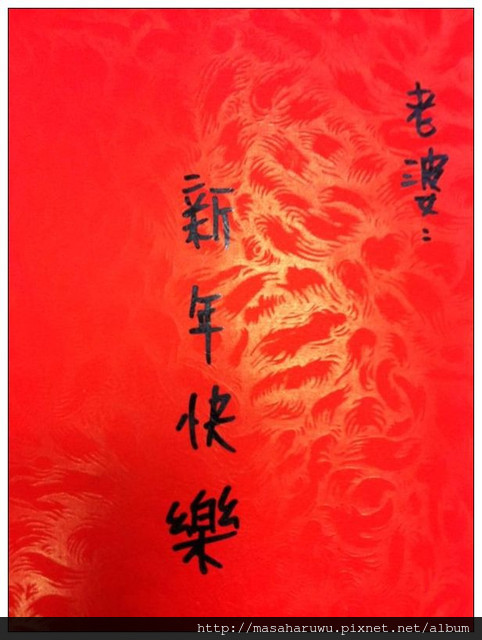 老婆：
新年快樂
http://masaharuwu.pixnet.net/album